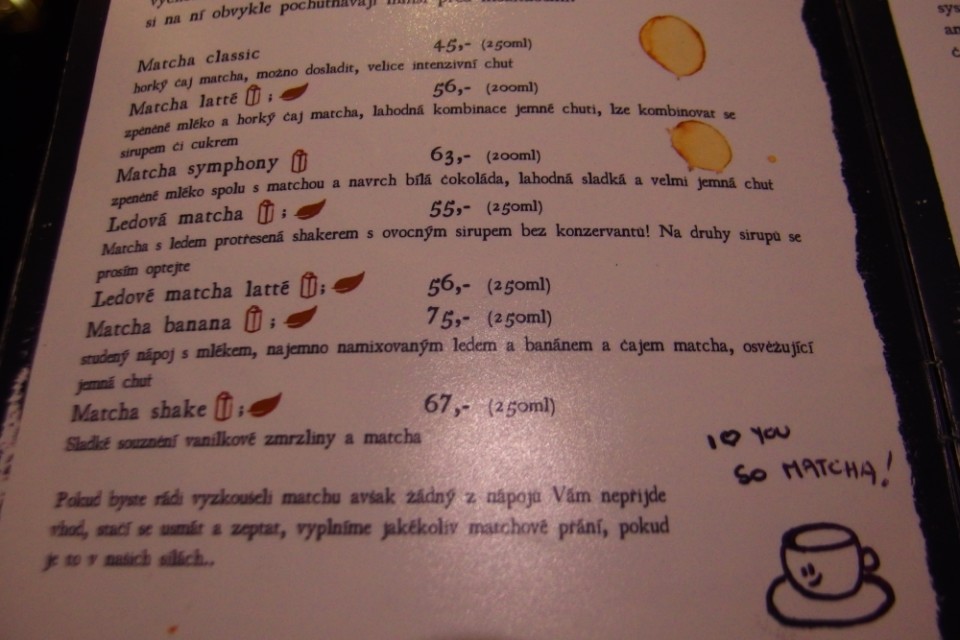 si na ní obvykle pochutnávají
Matcha classic 45,- (250ml)
horký čaj matcha, možno dosladit, velice intenzivní chuť
Matcha latté ; 56,- (200ml)
zpeněné mléko a horký čaj matcha, lahodná kombinace jemné chuti, lze kombinovat se
sirupem či cukrem
Matcha symphony 63,- (200ml)
zpeněné mléko spolu s matchou a navrch bílá čokoláda, lahodná sladká a velmi jemná chuť
Ledová matcha ; 55,- (250ml)
Matcha s ledem protřesená shakerem s ovocným sirupem bez konzervantů! Na druhy sirupů se
prosím optejte
Ledové matcha latté ; 56,- (250ml)
Matcha banana ; 75,- (250ml)
studený nápoj s mlékem, najemno namixovaným ledem a banánem a čajem matcha, osvěžující
jemná chuť
Matcha shake ; 67,- (250ml)
Sladké souznění vanilkové zmrzliny a matcha
Pokud byste rádi vyzkoušeli matchu avšak žádný z nápojů Vám nepřijde
vhod, stačí se usmát a zeptat, vyplníme jakékoliv matchové přání, pokud
je to v našich silách..
I ♡ YOU
SO MATCHA!